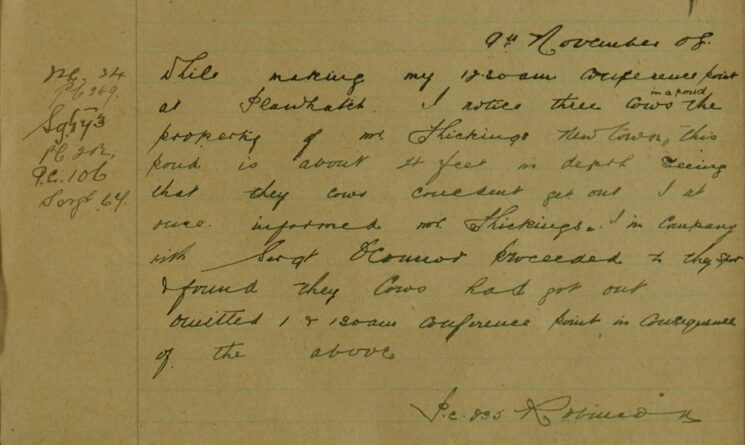 9th November 08.
While making my 12.30am Conference point
at Plawhatch. I notice three Cows in a pond the
property of Mr. Thickings New Town, this
pond is about 4 feet in depth Seeing
that they cows couldent get out I at
once informed Mr. Thickings. I in Company
with Sergt O'Connor proceeded to they spot
& found they Cows had got out
omitted 1 & 130am Conference point in Consequence
of the above
P.c. 835 Robinson
PC. 24
PC 249.
Sgt 73
PC 202,
P.C. 106
Sergt. 64.